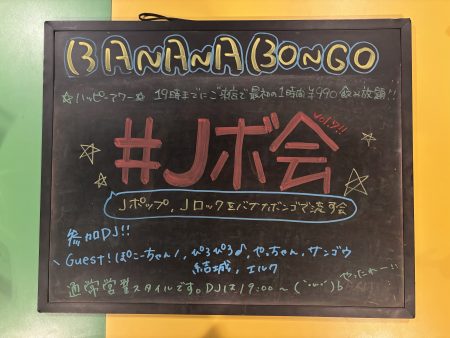 BANANA BONGO
☆ハッピーアワー☆ 19時までにご来店で最初の1時間¥990飲み放題!!
#Jボ会 vol.9!!
Jポップ、JロックをバナナボンゴでÀ流す会
参加DJ!!
Guest! ぽこーちゃん!, ぴろぴろ♂, やっちゃん, サンゴウ
結城, エルク
通常営業スタイルです。DJは19:00〜(˙꒳˙)b やったれー!!